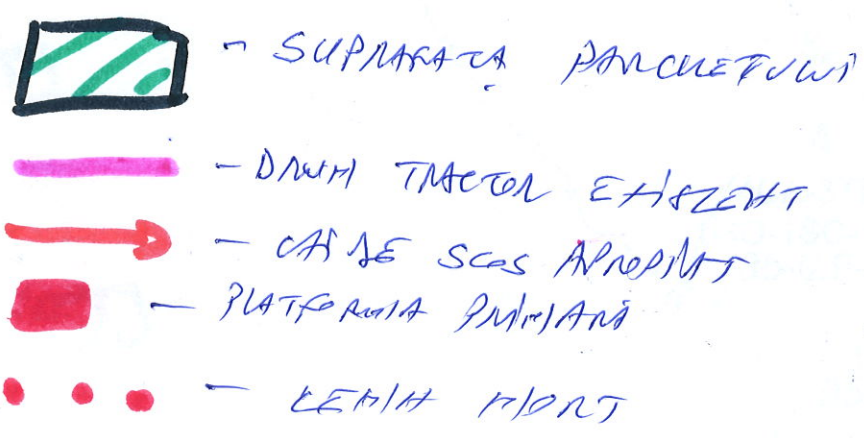 - SUPRAFAȚĂ PARCHETULUI
- DRUM TRACTOR EXISTENT
- CĂI DE SCOS APROPIAT
- PLATFORMA PRIMARĂ
- LEMN MORT